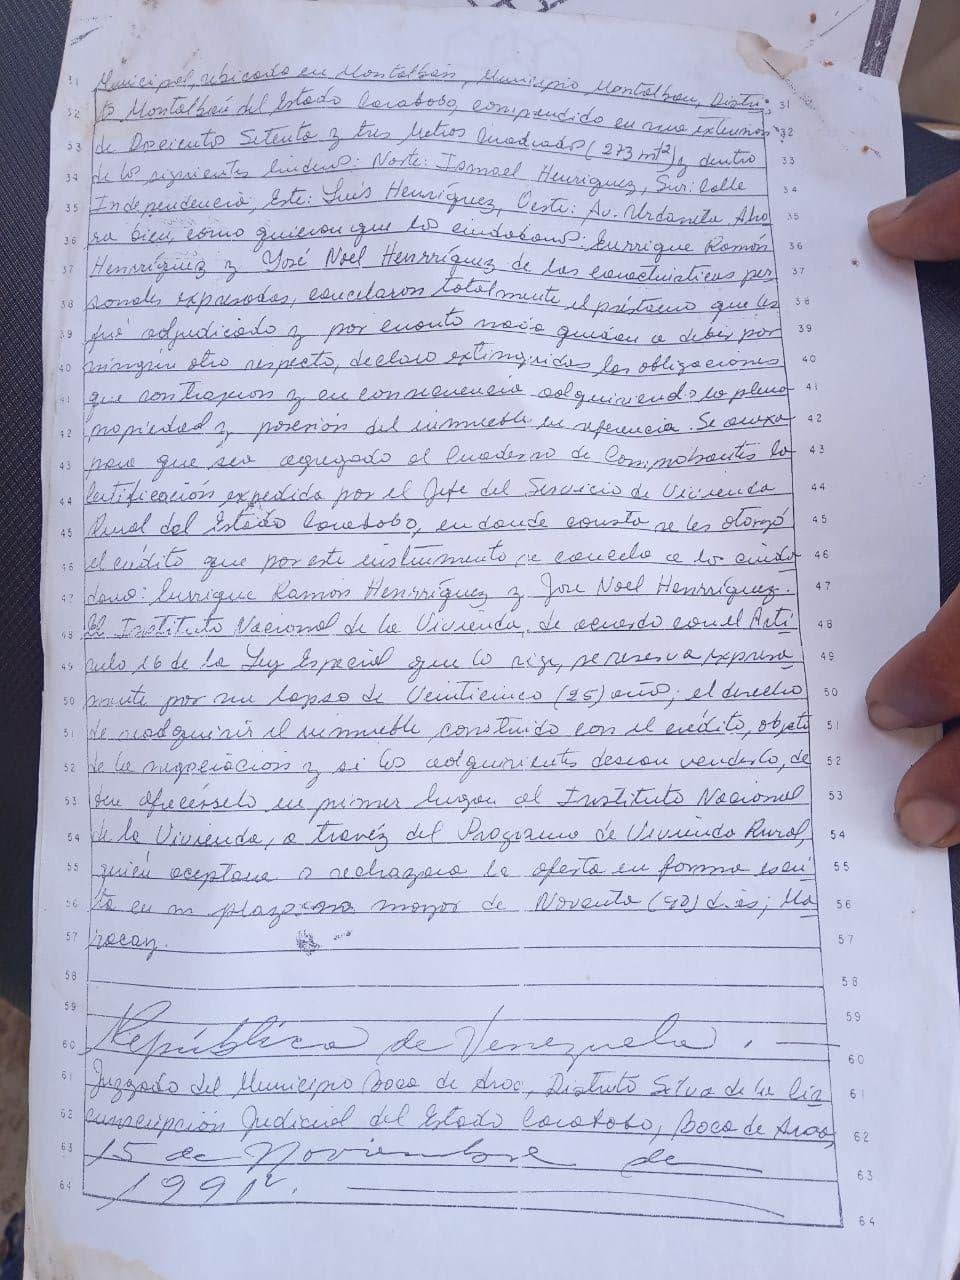 31 Municipal, ubicado en Montalbán, Municipio Montalban, Distri- 31
32 to Montalbán del Estado Carabobo, comprendido en una extensión 32
33 de Doscientos Setenta y tres Metros Cuadrados (273 mt²) y dentro 33
34 de los siguientes linderos: Norte: Ismael Henriquez, Sur: Calle 34
35 Independencia, Este: Luis Henríquez, Oeste: Av. Urdaneta. Aho 35
36 ra bien, como quieran que los ciudadanos: Enrrique Ramón 36
37 Henrríquez y José Noel Henrríquez de las características per 37
38 sonales expresadas, cancelaron totalmente el préstamo que les 38
39 fué adjudicado y por cuanto nada quedan a deber por 39
40 ningún otro respecto, declaro extinguidas las obligaciones 40
41 que contraxion y en consecuencia adquiriendo la plena 41
42 propiedad y posesión del inmueble en referencia. Se anexa 42
43 para que sea agregado al Cuaderno de Comprobantes la 43
44 Certificación expedida por el Jefe del Servicio de Vivienda 44
45 Rural del Estado Carabobo, en donde consta se les otorgó 45
46 el crédito que por este instrumento se cancela a los ciuda 46
47 dano: Enrrique Ramón Henrríquez y Jose Noel Henrríquez. 47
48 El Instituto Nacional de la Vivienda, de acuerdo con el Artí- 48
49 culo 16 de la Ley Especial que lo rige, se reserva expresa 49
50 mente por un lapso de Veinticinco (25) año; el derecho 50
51 de readquirir el inmueble construido con el crédito, objeto 51
52 de la negociación y si los adquirientes desean venderlo, de 52
53 ben ofrecérselo en primer lugar al Instituto Nacional 53
54 de la Vivienda, a travéz del Programa de Vivienda Rural, 54
55 quién aceptara o rechazara la oferta en forma escri 55
56 ta en un plazo no mayor de Noventa (90) días; Ma 56
57 racay. 57
58 58
59 59
60 República de Venezuela. 60
61 Juzgado del Municipio Boca de Aroa, Distrito Silva de la Cir 61
62 cunscripción Judicial del Estado Carabobo, Boca de Aroa, 62
63 15 de Noviembre de 63
64 1991. 64